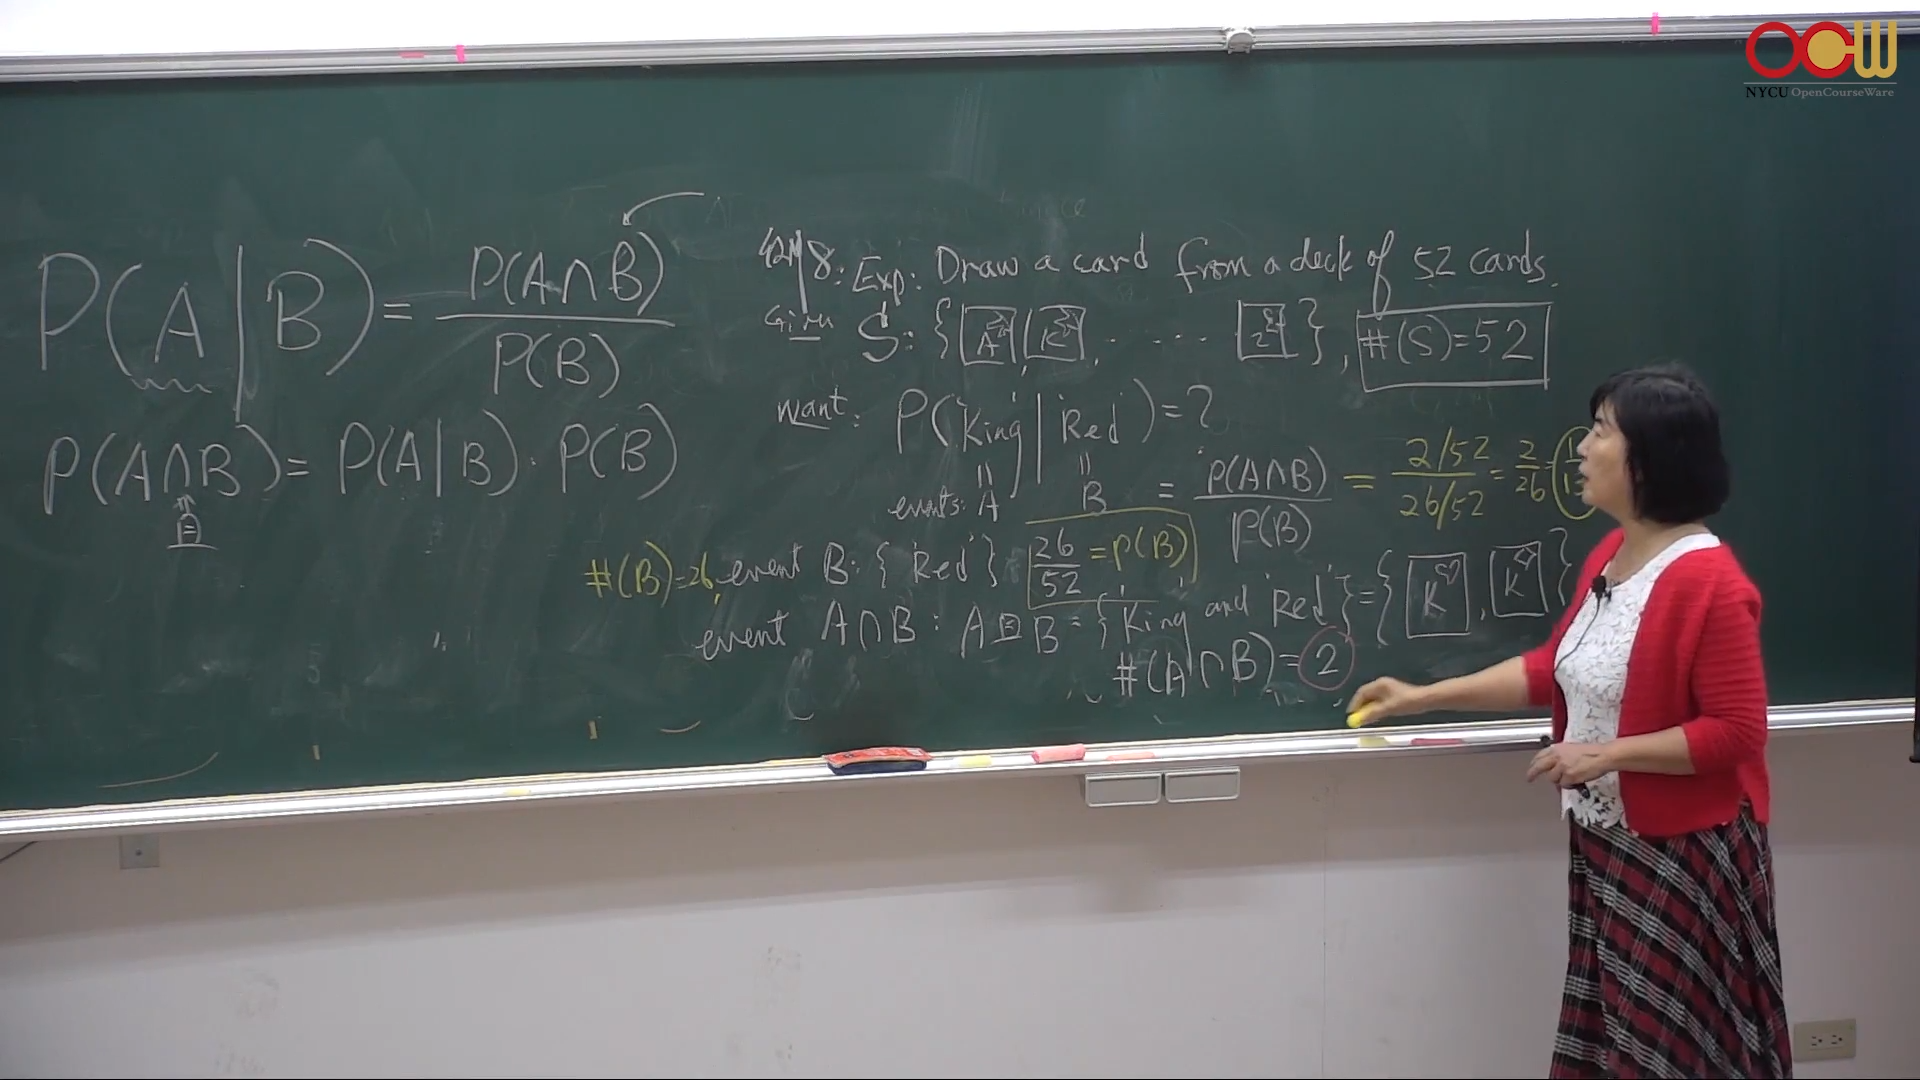 OCW
NYCU OpenCourseWare
P(A|B) = P(A∩B) / P(B)
P(A∩B) = P(A|B) · P(B)
且
8: Exp: Draw a card from a deck of 52 cards.
Given S: {A, K, · · · · 2}, #(S)=52
Want: P('King' | 'Red') = ?
events: A B = P(A∩B) / P(B) = 2/52 / 26/52 = 2/26 =
#(B)=26, event B: {'Red'} 26/52 = P(B)
event A∩B: A 且 B = {'King' and 'Red'} = {K♡, K♢}
#(A∩B) = 2